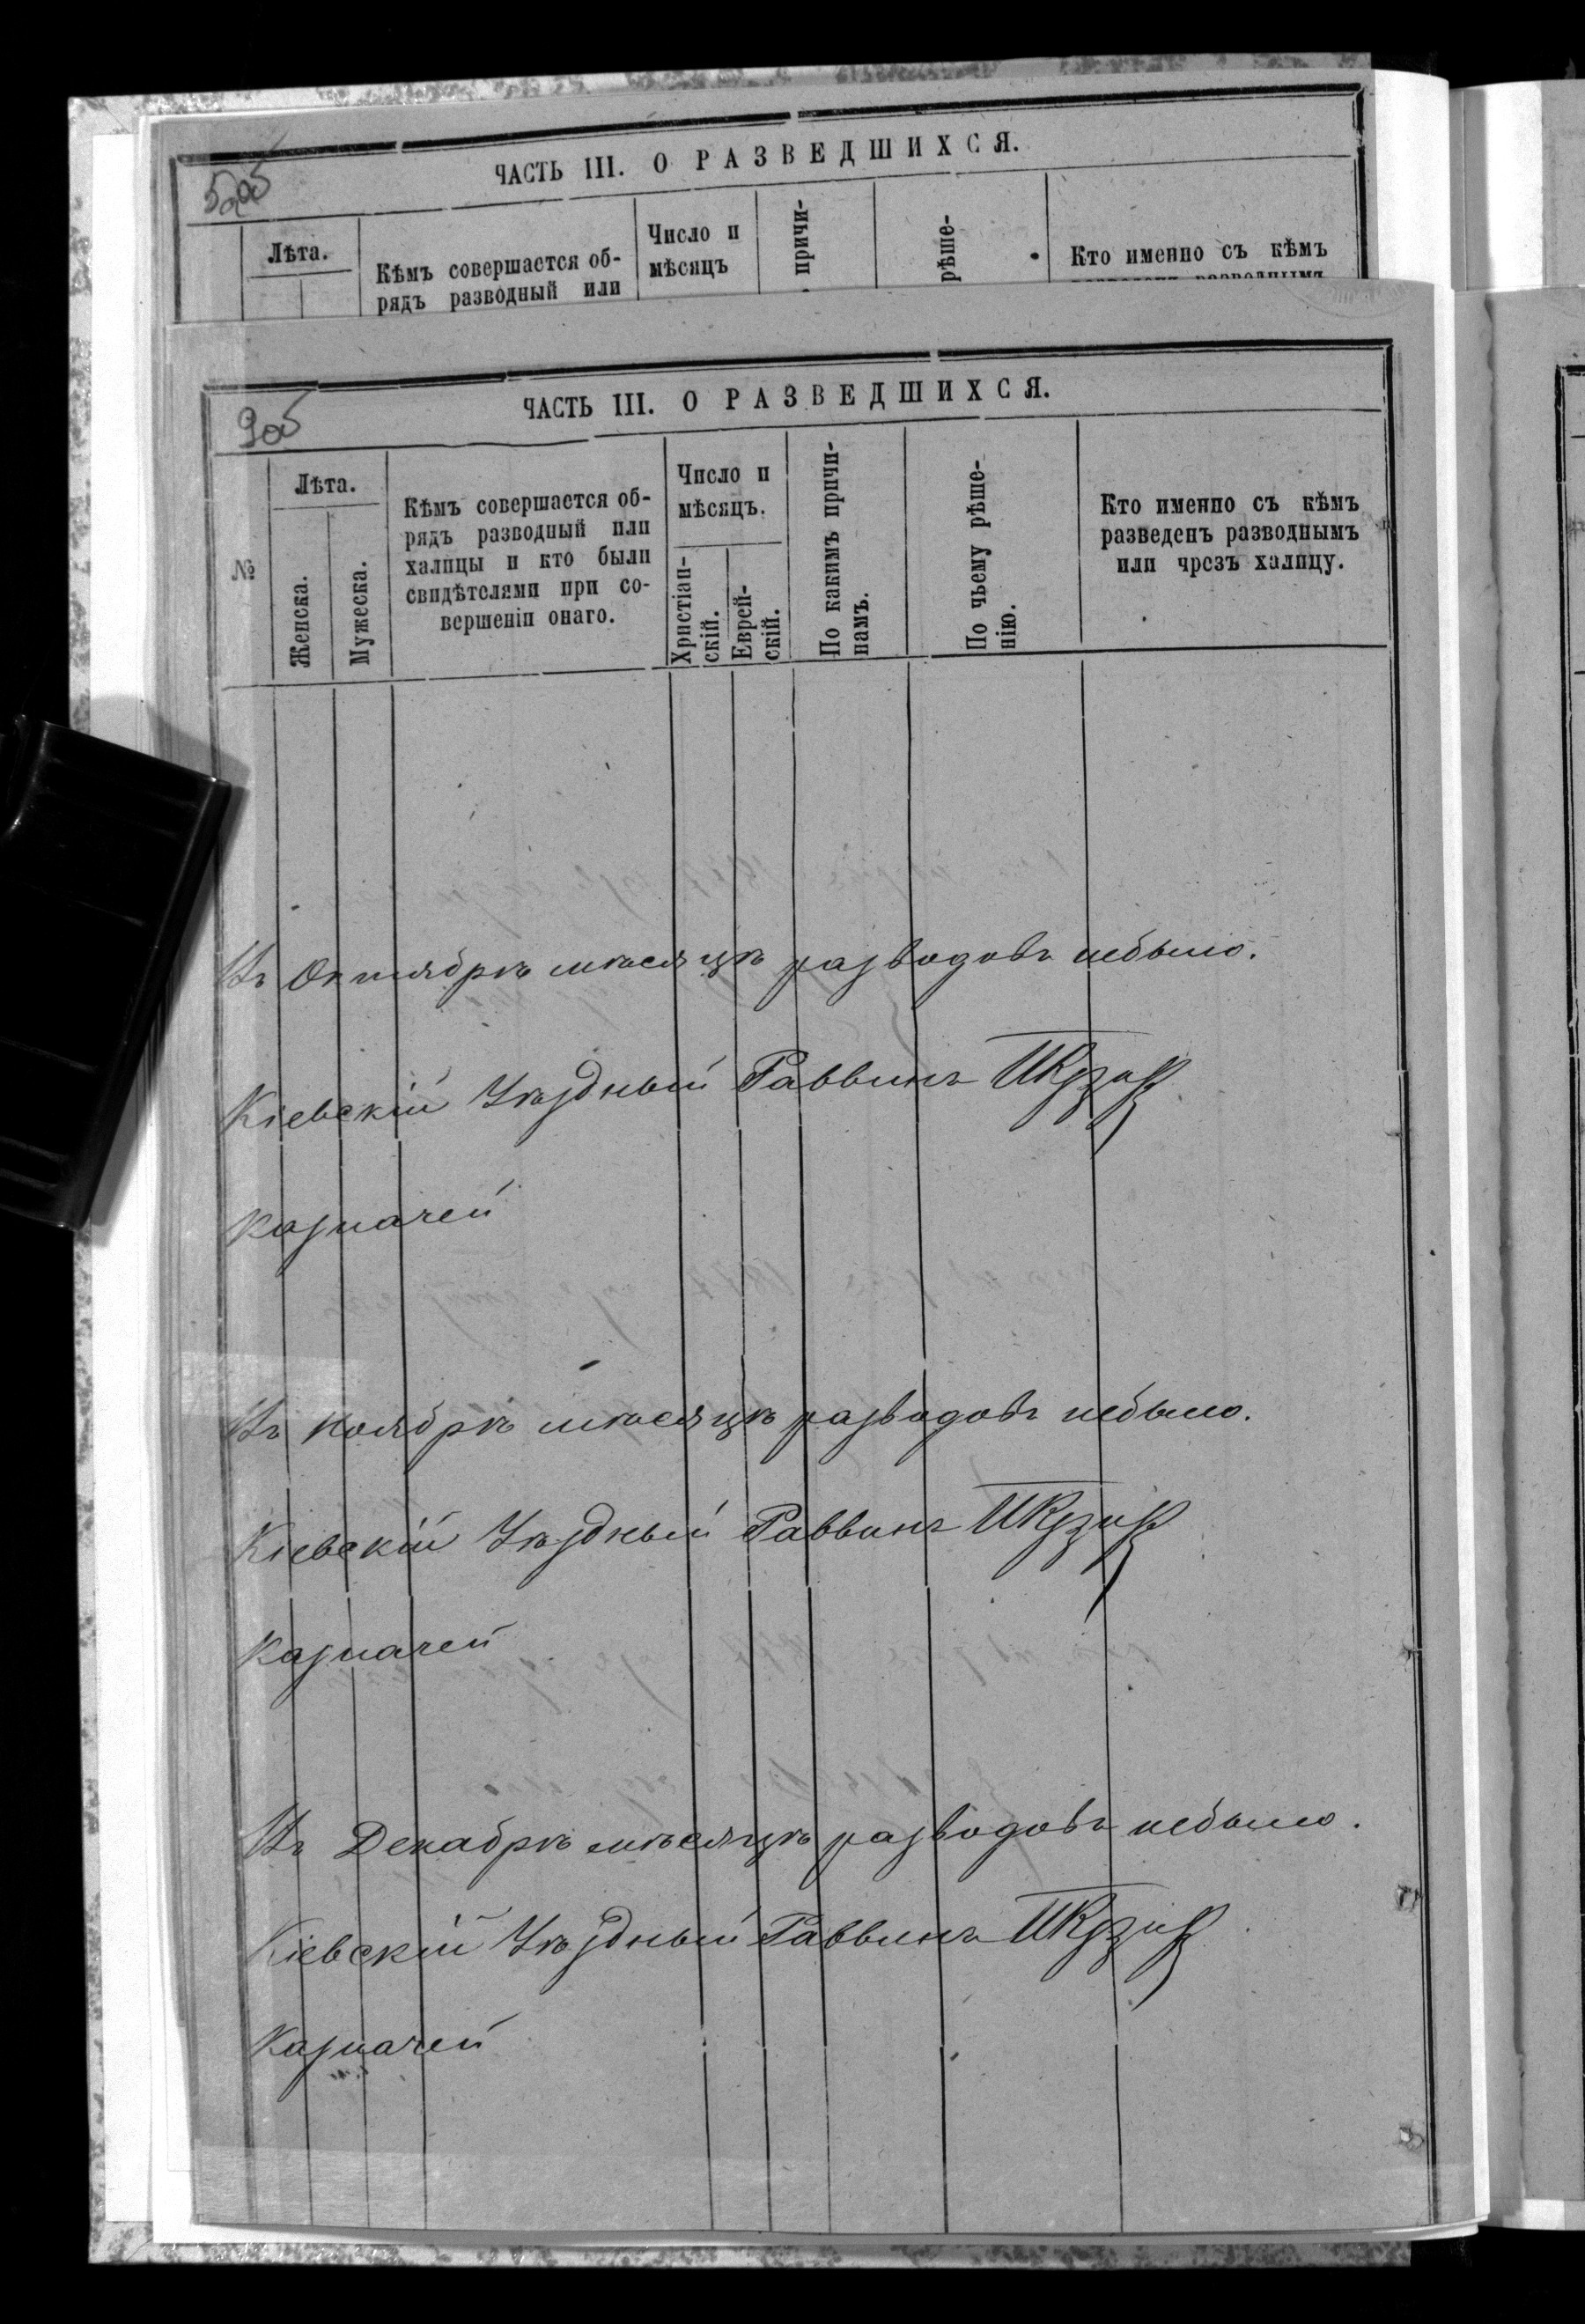 ЧАСТЬ III. О РАЗВЕДШИХСЯ.
Лѣта.
Кѣмъ совершается об-
рядъ разводный или
Число и
мѣсяцъ
причи-
рѣше-
Кто именно съ кѣмъ
разводнымъ
9об
ЧАСТЬ III. О РАЗВЕДШИХСЯ.
№
Лѣта.
Женска.
Мужеска.
Кѣмъ совершается об-
рядъ разводный или
халицы и кто были
свидѣтелями при со-
вершеніи онаго.
Число и
мѣсяцъ.
Христіан-
скій.
Еврей-
скій.
По какимъ причи-
намъ.
По чьему рѣше-
нію.
Кто именно съ кѣмъ
разведенъ разводнымъ
или чрезъ халицу.
Въ Октябрѣ мѣсяцѣ разводовъ небыло.
Кіевскій Уѣздный Раввинъ
Казначей
Въ Ноябрѣ мѣсяцѣ разводовъ небыло.
Кіевскій Уѣздный Раввинъ
Казначей
Въ Декабрѣ мѣсяцѣ разводовъ небыло.
Кіевскій Уѣздный Раввинъ
Казначей